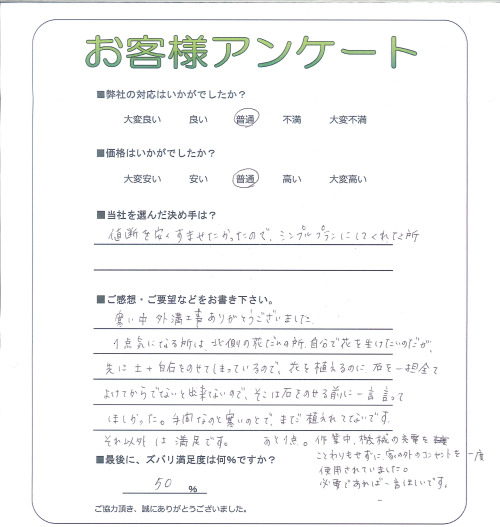 お客様アンケート
■弊社の対応はいかがでしたか？
大変良い 良い 普通 不満 大変不満
■価格はいかがでしたか？
大変安い 安い 普通 高い 大変高い
■当社を選んだ決め手は？
値断を安くすませたかったので、シンプルプランにしてくれた所
■ご感想・ご要望などをお書き下さい。
寒い中 外溝工事ありがとうございました
1点気になる所は、北側の花だんの所、自分で花を生けたいのだが、
先に土＋白石をのせてしまっているので、花を植えるのに石を一担全て
よけてからでないと出来ないので、そこは石をのせる前に一言言って
ほしかった。手間なのと寒いのとで、まだ植えれてないです。
それ以外は満足です。 あと1点。作業中、機械の充電を
ことわりもせずに家の外のコンセントを一度
使用されていました。
必要であれば一言ほしいです。
■最後に、ズバリ満足度は何％ですか？
50 %
ご協力頂き、誠にありがとうございました。